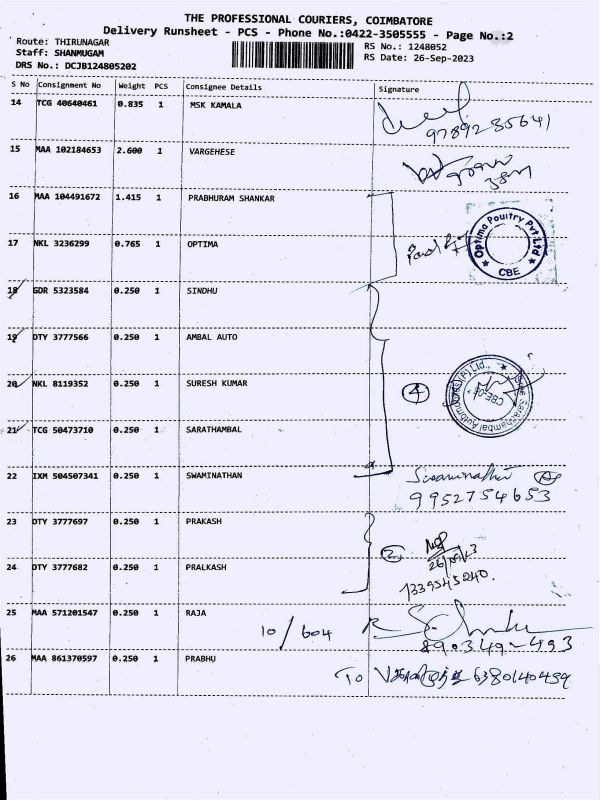 THE PROFESSIONAL COURIERS, COIMBATORE
Delivery Runsheet - PCS - Phone No.:0422-3505555 - Page No.:2
Route: THIRUNAGAR
Staff: SHANMUGAM
DRS No.: DCJB124805202
RS No.: 1248052
RS Date: 26-Sep-2023
S No Consignment No Weight PCS Consignee Details Signature
14 TCG 40640461 0.835 1 MSK KAMALA
9789235641
15 MAA 102184653 2.600 1 VARGEHESE
16 MAA 104491672 1.415 1 PRABHURAM SHANKAR
Optima Poultry Pvt Ltd
CBE
17 NKL 3236299 0.765 1 OPTIMA
18 GDR 5323584 0.250 1 SINDHU
19 DTY 3777566 0.250 1 AMBAL AUTO
20 NKL 8119352 0.250 1 SURESH KUMAR
4
21 TCG 50473710 0.250 1 SARATHAMBAL
22 IXM 504507341 0.250 1 SWAMINATHAN
Swaminathan
9952754653
23 DTY 3777697 0.250 1 PRAKASH
2
26/09/23
24 DTY 3777682 0.250 1 PRALKASH
25 MAA 571201547 0.250 1 RAJA
10/604
26 MAA 861370597 0.250 1 PRABHU
To